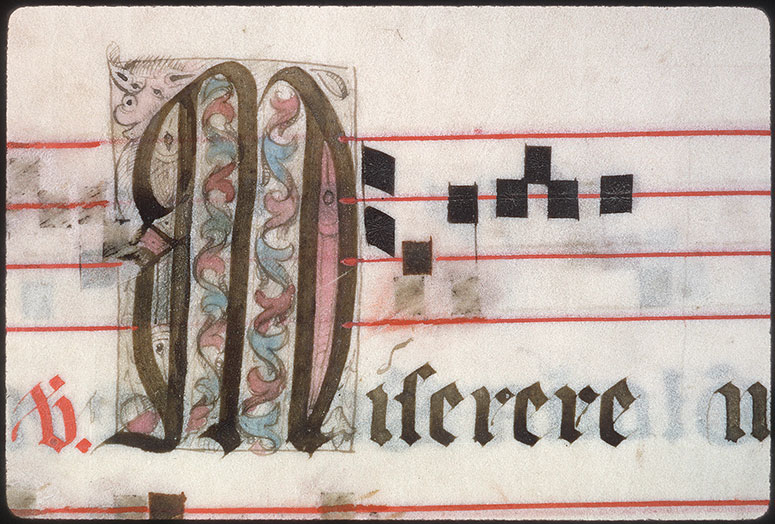 ℣. Miserere